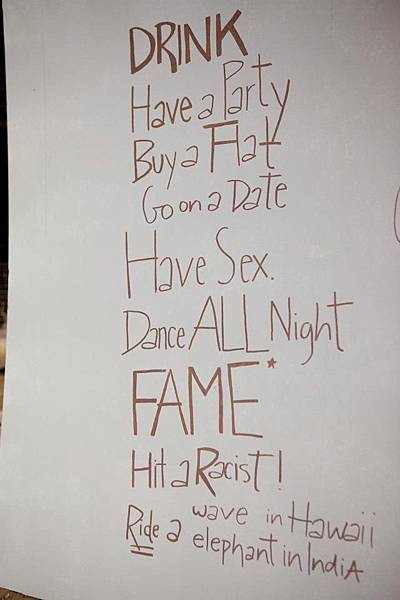 DRINK
Have a Party
Buy a Flat
Go on a Date
Have Sex.
Dance ALL Night
FAME*
Hit a Racist!
Ride a wave in Hawaii
elephant in IndiA